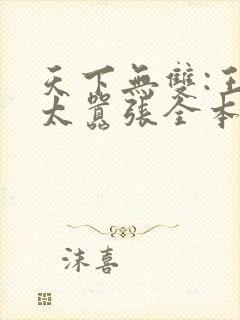 天下無雙:王
太囂張全本
沫喜